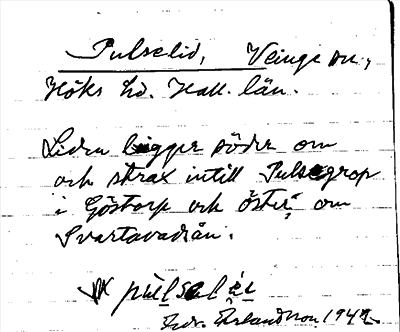 Pulselid, Veinge sn.,
Höks hd. Hall. län.
Liden ligger söder om
och strax intill Pulsegrop
i Göstorp och öster om
Svartavadsån.
pulsəl
Erlandsson 1942.